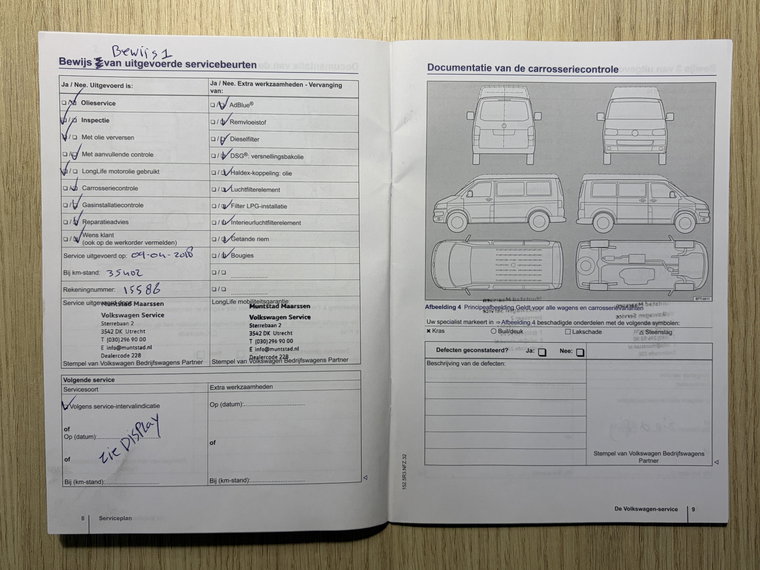 Bewijs 1
Bewijs van uitgevoerde servicebeurten
Ja / Nee. Uitgevoerd is:
Ja / Nee. Extra werkzaamheden - Vervanging van:
❏/❏ Olieservice
❏/❏ AdBlue®
❏/❏ Inspectie
❏/❏ Remvloeistof
❏/❏ Met olie verversen
❏/❏ Dieselfilter
❏/❏ Met aanvullende controle
❏/❏ DSG®: versnellingsbakolie
❏/❏ LongLife motorolie gebruikt
❏/❏ Haldex-koppeling: olie
❏/❏ Carrosseriecontrole
❏/❏ Luchtfilterelement
❏/❏ Gasinstallatiecontrole
❏/❏ Filter LPG-installatie
❏/❏ Reparatieadvies
❏/❏ Interieurluchtfilterelement
❏/❏ Wens klant
(ook op de werkorder vermelden)
❏/❏ Getande riem
Service uitgevoerd op: 04-04-2018
❏/❏ Bougies
Bij km-stand: 35402
❏/❏
Rekeningnummer: 15586
❏/❏
Service uitgevoerd
LongLife mobiliteitsgarantie
Muntstad Maarssen
Volkswagen Service
Sterrebaan 2
3542 DK Utrecht
T (030)296 90 00
E info@muntstad.nl
Dealercode 228
Muntstad Maarssen
Volkswagen Service
Sterrebaan 2
3542 DK Utrecht
T (030)296 90 00
E info@muntstad.nl
Dealercode 228
Stempel van Volkswagen Bedrijfswagens Partner
Stempel van Volkswagen Bedrijfswagens Partner
Volgende service
Servicesoort
Extra werkzaamheden
❏ Volgens service-intervalindicatie
Op (datum):
of
Op (datum):
zie DISPLAY
of
of
Bij (km-stand):
Bij (km-stand):
8 Serviceplan
Documentatie van de carrosseriecontrole
Afbeelding 4 Principeafbeelding: Geldt voor alle wagens en carrosserievarianten
Uw specialist markeert in ⇒ Afbeelding 4 beschadigde onderdelen met de volgende symbolen:
✕ Kras
○ Buil/deuk
□ Lakschade
△ Steenslag
Defecten geconstateerd?
Ja: ❏
Nee: ❏
Beschrijving van de defecten:
Stempel van Volkswagen Bedrijfswagens
Partner
152.5R3.NFZ.32
De Volkswagen-service 9